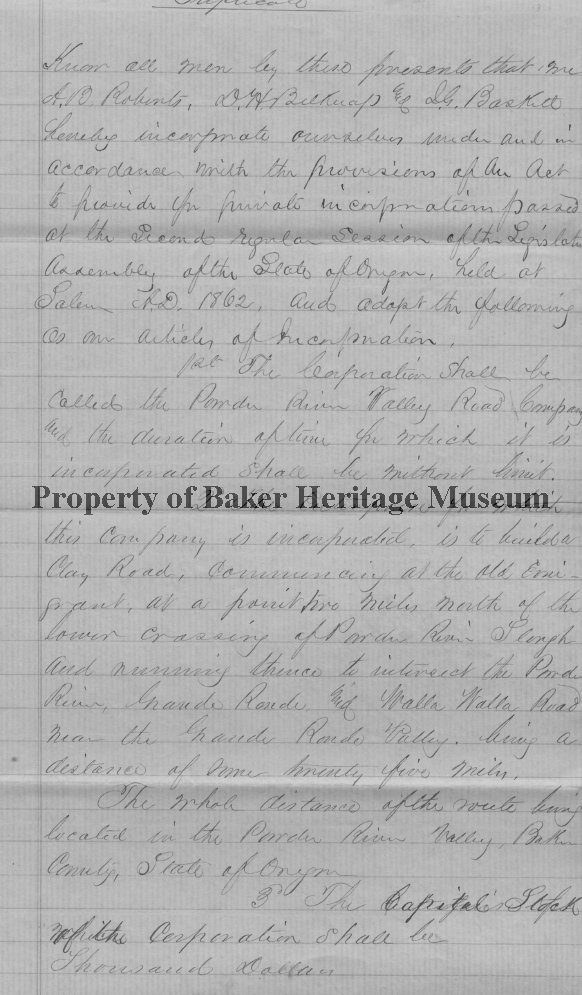 Triplicate
Know all men by these presents that we
A. B. Roberts, D. H. Belknap & I. G. Baskett
hereby incorporate ourselves under and in
accordance with the provisions of An Act
to provide for private incorporations passed
at the Second regular Session of the Legislative
Assembly of the State of Oregon, held at
Salem A.D. 1862, and adopt the following
as our articles of Incorporation.
1st The Corporation shall be
called the Powder River Valley Road Company
and the duration of time for which it is
incorporated shall be without limit.
Property of Baker Heritage Museum
this Company is incorporated, is to build a
Clay Road, commencing at the old Emi-
grant, at a point two miles north of the
lower crossing of Powder River Slough
and running thence to intersect the Powder
River, Grande Ronde, & Walla Walla Road
near the Grande Ronde Valley. being a
distance of some twenty five miles.
The whole distance of the route being
located in the Powder River Valley, Baker
County, State of Oregon
3d The Capital Stock
of the Corporation shall be
Thousand Dollars